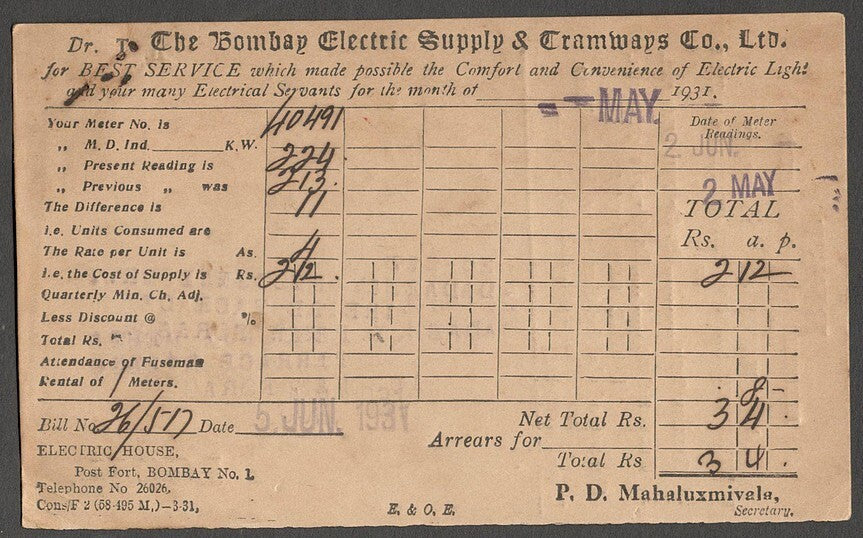 Dr. To The Bombay Electric Supply & Tramways Co., Ltd.
for BEST SERVICE which made possible the Comfort and Convenience of Electric Light
and your many Electrical Servants for the month of MAY 1931.
Your Meter No. is 40491 Date of Meter Readings.
„ M. D. Ind. K.W. 2 JUN.
„ Present Reading is 224
„ Previous „ was 213. 2 MAY
The Difference is 11 TOTAL
i.e. Units Consumed are Rs. a. p.
The Rate per Unit is As. 4
i.e. the Cost of Supply is Rs. 2 12 . 2 12
Quarterly Min. Ch. Adj.
Less Discount @ %
Total Rs.
Attendance of Fuseman
Rental of 1 Meters. 8 -
Bill No 26/517 Date 5 JUN. 1931 Net Total Rs. 3 4
Arrears for
ELECTRIC HOUSE, Total Rs 3 4 .
Post Fort, BOMBAY No. 1.
Telephone No 26026, P. D. Mahaluxmivala,
Cons/F 2 (58-495 M.)–3-31, E. & O. E. Secretary.